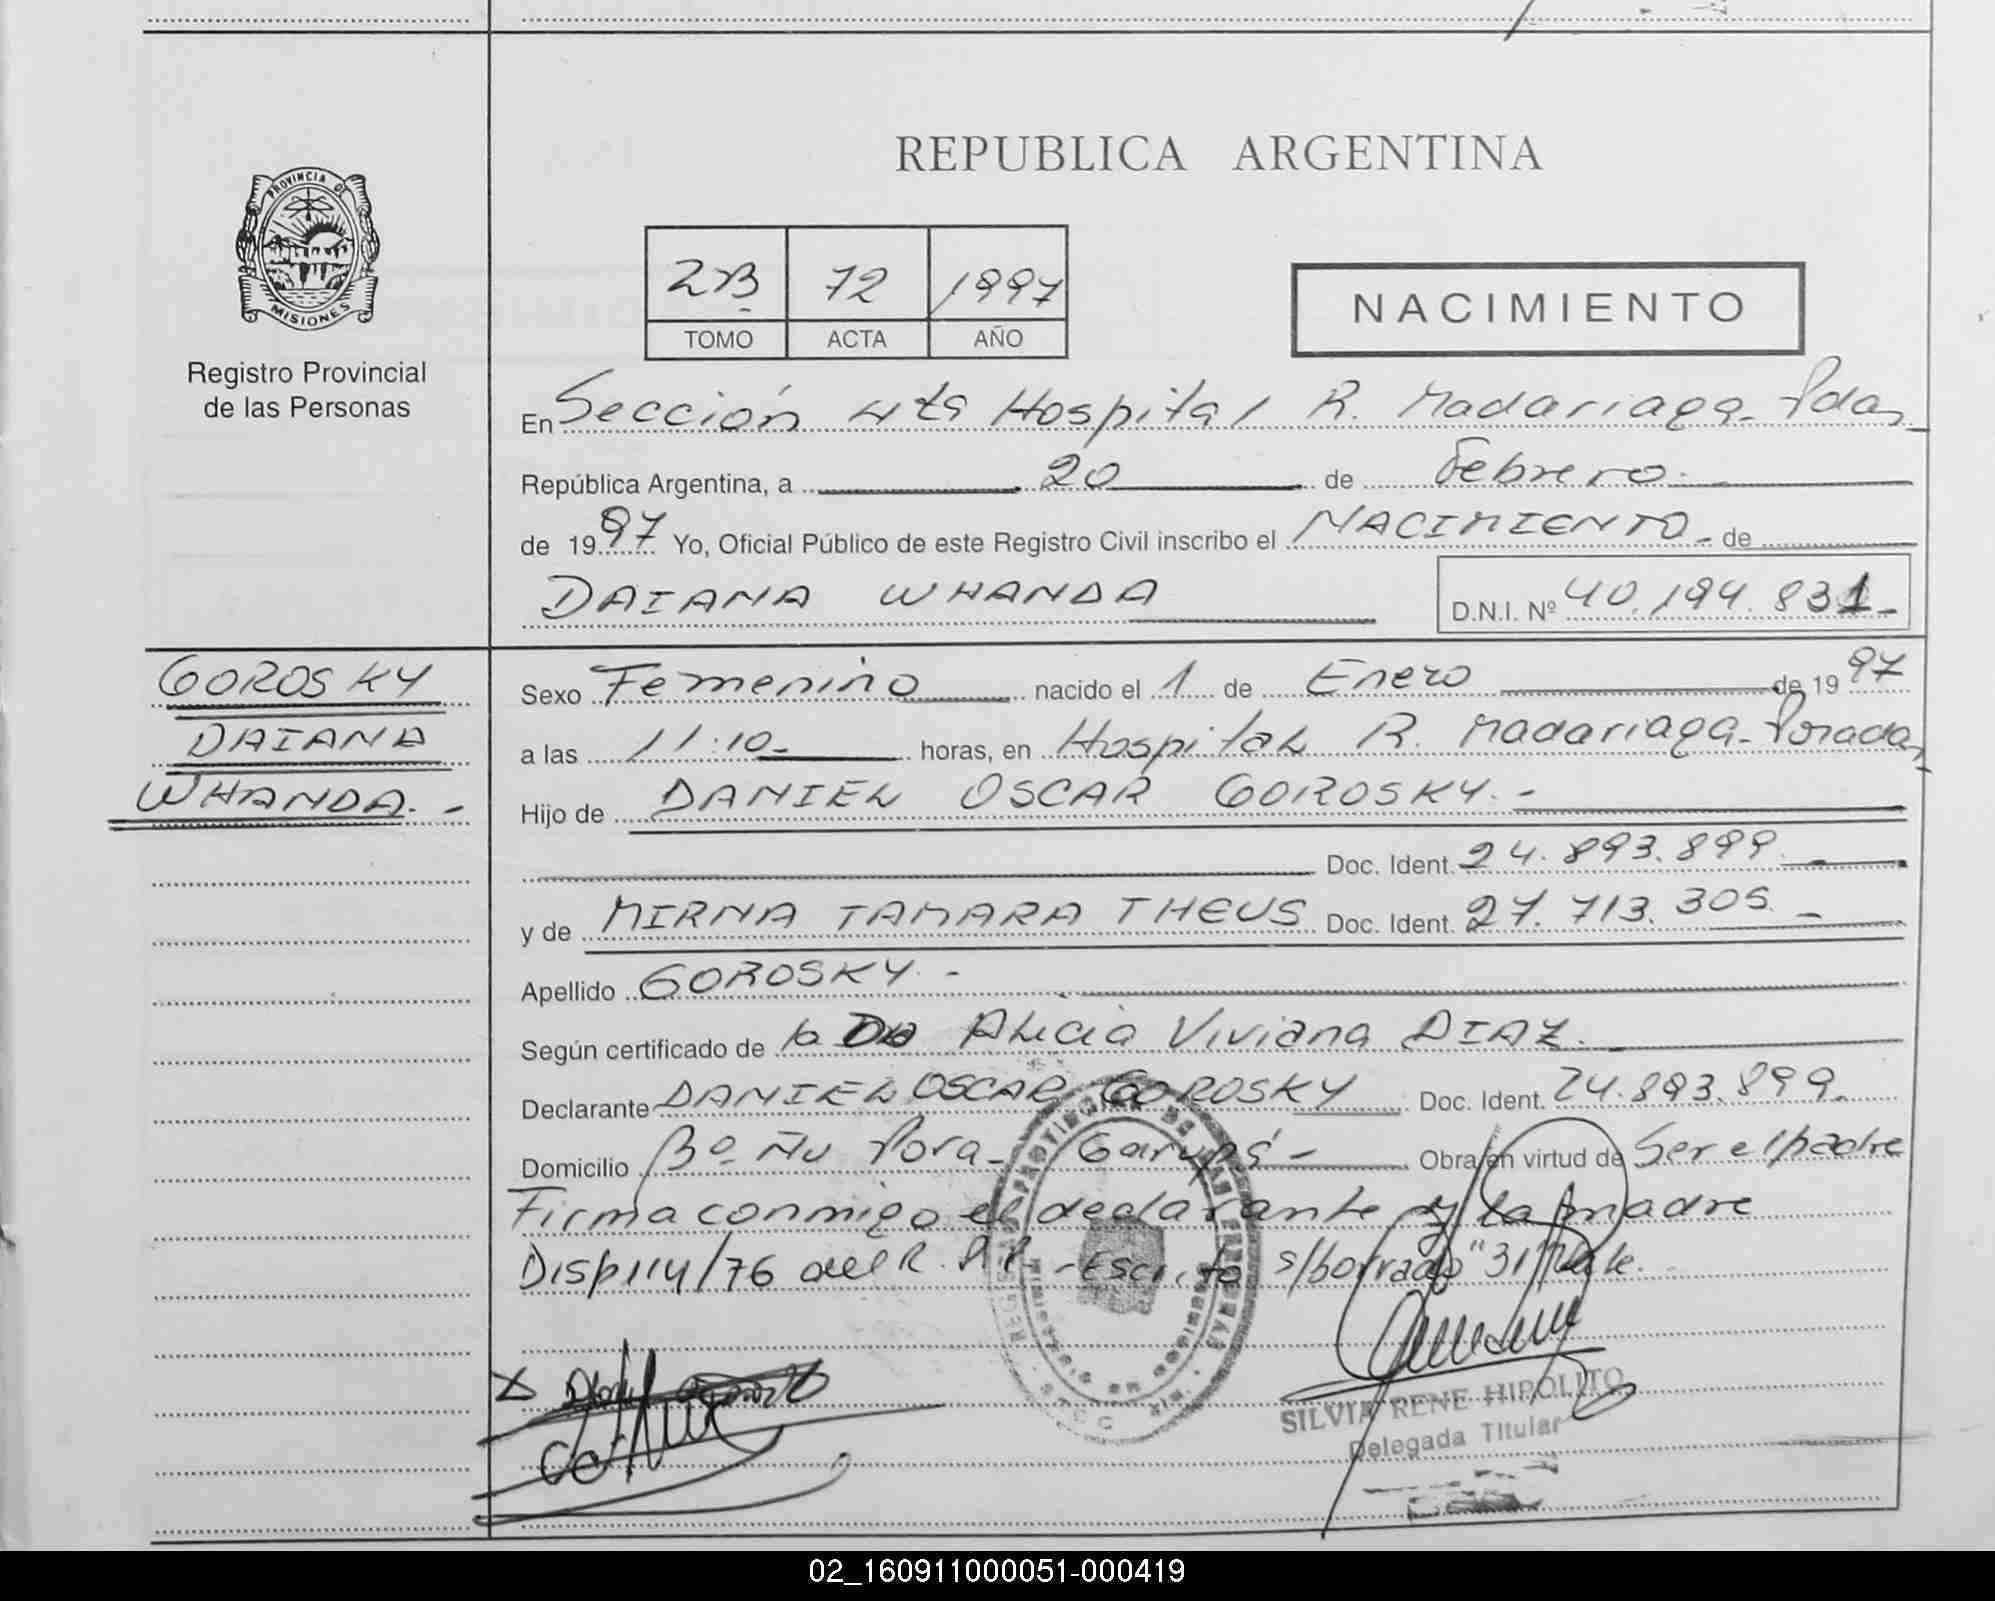 REPUBLICA ARGENTINA
PROVINCIA DE
MISIONES
Registro Provincial
de las Personas
2B 72 1997
TOMO ACTA AÑO
NACIMIENTO
En Sección 4ta Hospital R. Madariaga - Pdas
República Argentina, a 20 de Febrero.
de 1997 Yo, Oficial Público de este Registro Civil inscribo el NACIMIENTO - de
DAIANA WHANDA D.N.I. Nº 40.194.831 -
GOROSKY
DAIANA
WHANDA. -
Sexo Femenino nacido el 1 de Enero de 1997
a las 11:10 - horas, en Hospital R. Madariaga - Posadas
Hijo de DANIEL OSCAR GOROSKY. -
Doc. Ident. 24.893.899. -
y de MIRNA TAMARA THEUS Doc. Ident. 27.713.305. -
Apellido GOROSKY. -
Según certificado de la Alicia Viviana DIAZ. -
Declarante DANIEL OSCAR GOROSKY Doc. Ident. 24.893.899. -
Domicilio Bº Ñu Pora - Garupá - Obra en virtud de Ser el padre
Firma conmigo el declarante y la madre
Disp 114/76 del R.P.P. - Escrito s/borrado "31" Vale. -
SILVIA RENE HIPOLITO
Delegada Titular
02_160911000051-000419